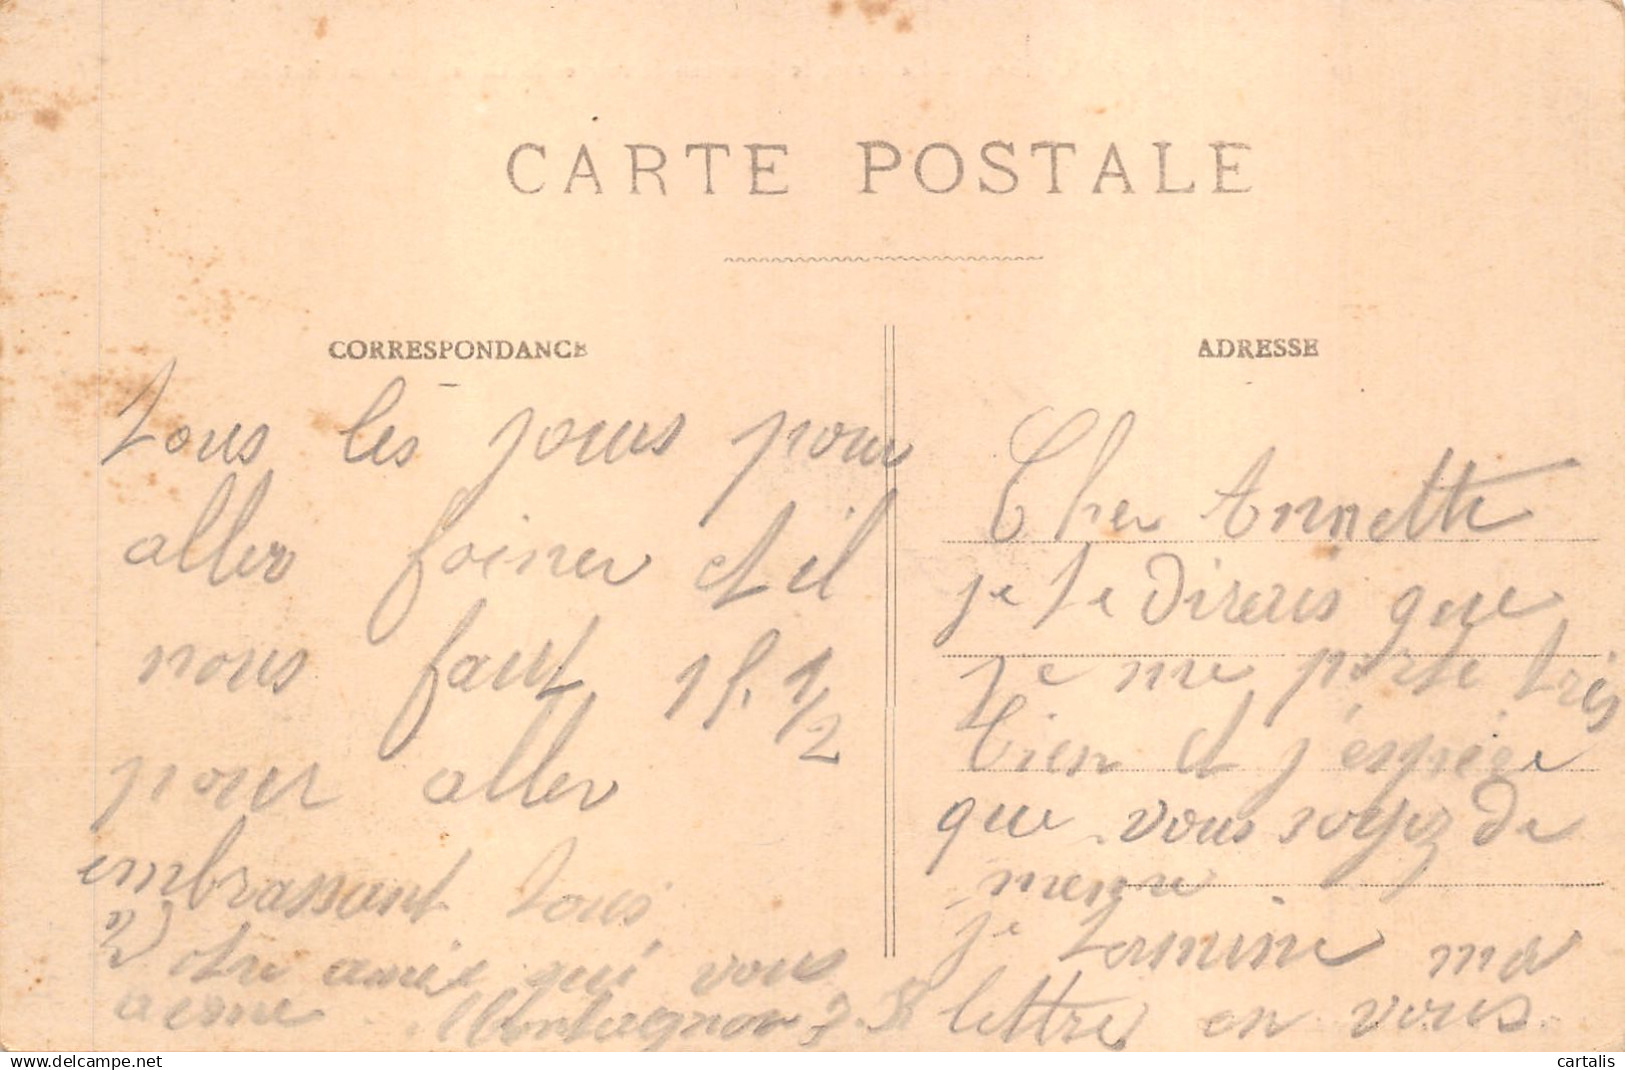 CARTE POSTALE
CORRESPONDANCE
tous les jours pour
aller foiner et il
nous faut 1 f. 1/2
pour aller
embrassant tous
Votre amie qui vous
aime Montagnon J.
ADRESSE
Cher Annette
je te direrais que
je me porte très
bien et j'espère
que vous soyez de
meme
je termine ma
lettre en vous
cartalis